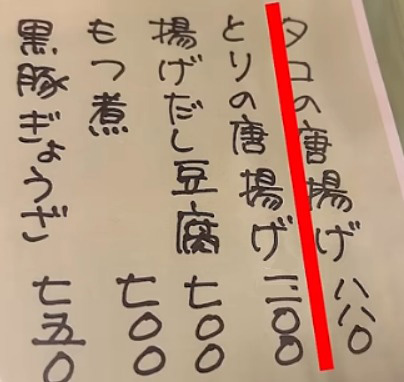 タコの唐揚げ 八八〇
とりの唐揚げ 三〇〇
揚げだし豆腐 七〇〇
もつ煮 七〇〇
黒豚ぎょうざ 七五〇